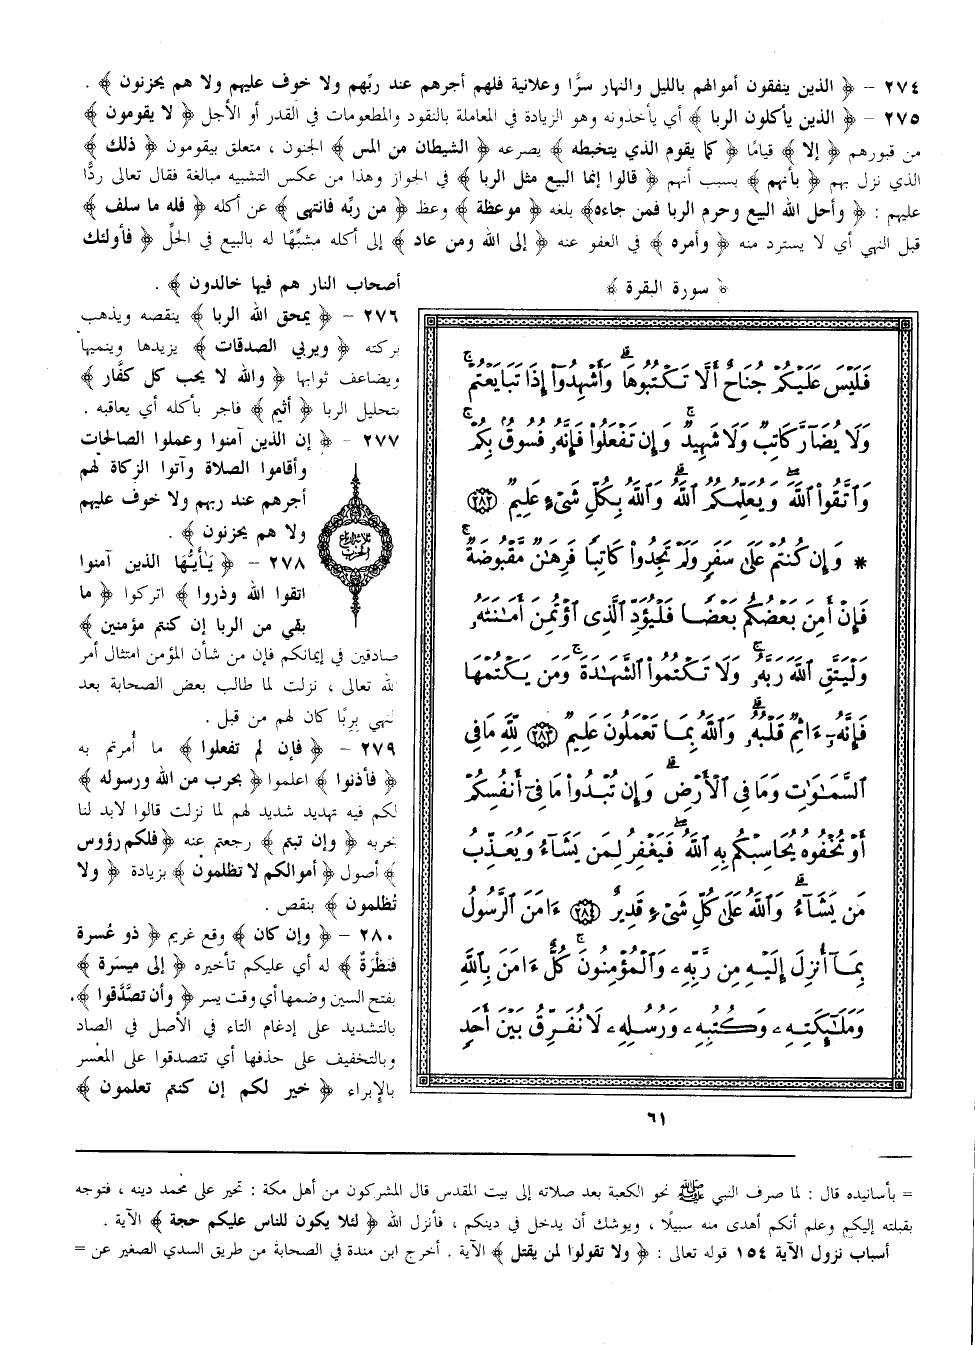 ٢٧٤ - ﴿ الذين ينفقون أموالهم بالليل والنهار سرًّا وعلانية فلهم أجرهم عند ربِّهم ولا خوف عليهم ولا هم يحزنون ﴾ .
٢٧٥ - ﴿ الذين يأكلون الربا ﴾ أي يأخذونه وهو الزيادة في المعاملة بالنقود والمطعومات في القدر أو الأجل ﴿ لا يقومون ﴾
من قبورهم ﴿ إلا ﴾ قيامًا ﴿ كما يقوم الذي يتخبطه ﴾ يصرعه ﴿ الشيطان من المس ﴾ الجنون ، متعلق بيقومون ﴿ ذلك ﴾
الذي نزل بهم ﴿ بأنهم ﴾ بسبب أنهم ﴿ قالوا إنما البيع مثل الربا ﴾ في الجواز وهذا من عكس التشبيه مبالغة فقال تعالى ردًّا
عليهم : ﴿ وأحل الله البيع وحرم الربا فمن جاءه ﴾ بلغه ﴿ موعظة ﴾ وعظ ﴿ من ربِّه فانتهى ﴾ عن أكله ﴿ فله ما سلف ﴾
قبل النهي أي لا يسترد منه ﴿ وأمره ﴾ في العفو عنه ﴿ إلى الله ومن عاد ﴾ إلى أكله مشبِّهًا له بالبيع في الحلِّ ﴿ فأولئك
أصحاب النار هم فيها خالدون ﴾ .
٢٧٦ - ﴿ يمحق الله الربا ﴾ ينقصه ويذهب
بركته ﴿ ويربي الصدقات ﴾ يزيدها وينميها
ويضاعف ثوابها ﴿ والله لا يحب كل كفَّار ﴾
بتحليل الربا ﴿ أثيم ﴾ فاجر بأكله أي يعاقبه .
٢٧٧ - ﴿ إن الذين آمنوا وعملوا الصالحات
وأقاموا الصلاة وآتوا الزكاة لهم
أجرهم عند ربهم ولا خوف عليهم
ولا هم يحزنون ﴾ .
٢٧٨ - ﴿ يَٰأَيُّهَا الذين آمنوا
اتقوا الله وذروا ﴾ اتركوا ﴿ ما
بقي من الربا إن كنتم مؤمنين ﴾
صادقين في إيمانكم فإن من شأن المؤمن امتثال أمر
لله تعالى ، نزلت لما طالب بعض الصحابة بعد
لنهي بِربًا كان لهم من قبل .
٢٧٩ - ﴿ فإن لم تفعلوا ﴾ ما أُمرتم به
﴿ فأذنوا ﴾ اعلموا ﴿ بحرب من الله ورسوله ﴾
لكم فيه تهديد شديد لهم لما نزلت قالوا لابد لنا
بحربه ﴿ وإن تبتم ﴾ رجعتم عنه ﴿ فلكم رؤوس
﴾ أصول ﴿ أموالكم لا تظلمون ﴾ بزيادة ﴿ ولا
تُظلمون ﴾ بنقص .
٢٨٠ - ﴿ وإن كان ﴾ وقع غريم ﴿ ذو عُسرة
فنظِرَةٌ ﴾ له أي عليكم تأخيره ﴿ إلى ميسَرة ﴾
بفتح السين وضمها أي وقت يسر ﴿ وأن تصَّدَّقوا ﴾.
بالتشديد على إدغام التاء في الأصل في الصاد
وبالتخفيف على حذفها أي تتصدقوا على المعْسر
بالإبراء ﴿ خير لكم إن كنتم تعلمون ﴾
ثلاثة أرباع
الحزب
﴿ سورة البقرة ﴾
فَلَيْسَ عَلَيْكُمْ جُنَاحٌ أَلَّا تَكْتُبُوهَا ۗ وَأَشْهِدُوٓا۟ إِذَا تَبَايَعْتُمْ ۚ
وَلَا يُضَآرَّ كَاتِبٌ وَلَا شَهِيدٌ ۚ وَإِن تَفْعَلُوا۟ فَإِنَّهُۥ فُسُوقٌۢ بِكُمْ ۗ
وَٱتَّقُوا۟ ٱللَّهَ ۖ وَيُعَلِّمُكُمُ ٱللَّهُ ۗ وَٱللَّهُ بِكُلِّ شَىْءٍ عَلِيمٌ ﴿٢٨٢﴾
* وَإِن كُنتُمْ عَلَىٰ سَفَرٍ وَلَمْ تَجِدُوا۟ كَاتِبًا فَرِهَٰنٌ مَّقْبُوضَةٌ ۖ
فَإِنْ أَمِنَ بَعْضُكُم بَعْضًا فَلْيُؤَدِّ ٱلَّذِى ٱؤْتُمِنَ أَمَٰنَتَهُۥ
وَلْيَتَّقِ ٱللَّهَ رَبَّهُۥ ۗ وَلَا تَكْتُمُوا۟ ٱلشَّهَٰدَةَ ۚ وَمَن يَكْتُمْهَا
فَإِنَّهُۥٓ ءَاثِمٌ قَلْبُهُۥ ۗ وَٱللَّهُ بِمَا تَعْمَلُونَ عَلِيمٌ ﴿٢٨٣﴾ لِّلَّهِ مَا فِى
ٱلسَّمَٰوَٰتِ وَمَا فِى ٱلْأَرْضِ ۗ وَإِن تُبْدُوا۟ مَا فِىٓ أَنفُسِكُمْ
أَوْ تُخْفُوهُ يُحَاسِبْكُم بِهِ ٱللَّهُ ۖ فَيَغْفِرُ لِمَن يَشَآءُ وَيُعَذِّبُ
مَن يَشَآءُ ۗ وَٱللَّهُ عَلَىٰ كُلِّ شَىْءٍ قَدِيرٌ ﴿٢٨٤﴾ ءَامَنَ ٱلرَّسُولُ
بِمَآ أُنزِلَ إِلَيْهِ مِن رَّبِّهِۦ وَٱلْمُؤْمِنُونَ ۚ كُلٌّ ءَامَنَ بِٱللَّهِ
وَمَلَٰٓئِكَتِهِۦ وَكُتُبِهِۦ وَرُسُلِهِۦ لَا نُفَرِّقُ بَيْنَ أَحَدٍ
٦١
= بأسانيده قال : لما صرف النبي ﷺ نحو الكعبة بعد صلاته إلى بيت المقدس قال المشركون من أهل مكة : تحير على محمد دينه ، فتوجه
بقبلته إليكم وعلم أنكم أهدى منه سبيلًا ، ويوشك أن يدخل في دينكم ، فأنزل الله ﴿ لئلا يكون للناس عليكم حجة ﴾ الآية .
أسباب نزول الآية ١٥٤ قوله تعالى : ﴿ ولا تقولوا لمن يقتل ﴾ الآية . أخرج ابن مندة في الصحابة من طريق السدي الصغير عن =